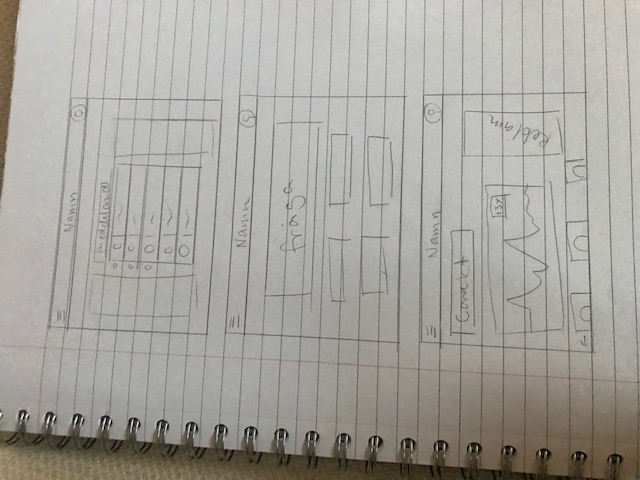 Namn
meddeland
Namn
fråga
Namn
Conekt
Reklam